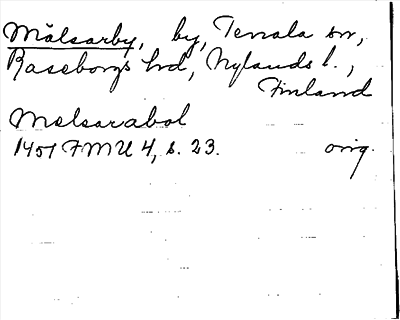 Målsarby, by, Tenala sn,
Raseborgs hrd, Nylands l.,
Finland
Melsarabol
1451 FMU 4, s. 23. orig.